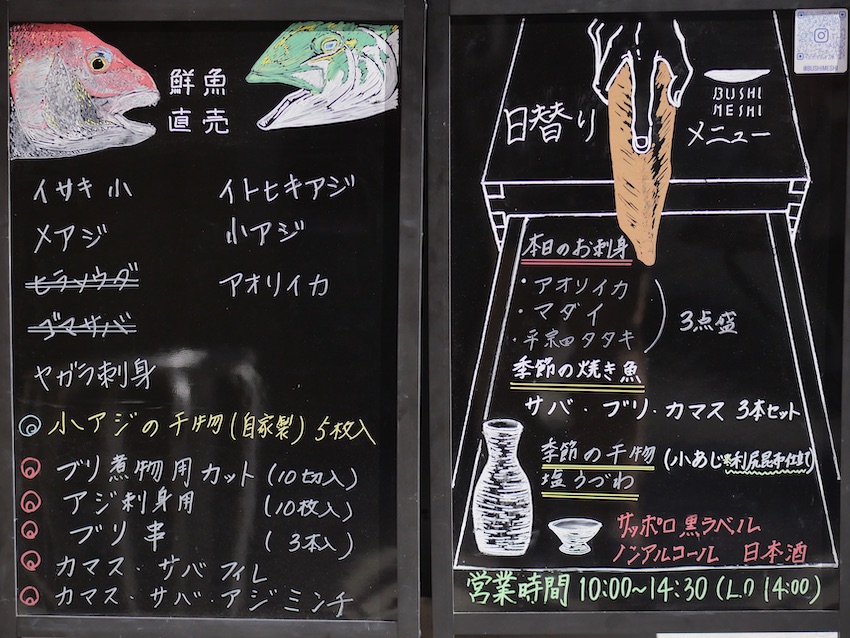 鮮魚
直売
イサキ 小
メアジ
ヒラソウダ
ゴマサバ
ヤガラ刺身
イトヒキアジ
小アジ
アオリイカ
小アジの干物(自家製) 5枚入
ブリ煮物用カット(10切入)
アジ刺身用 (10枚入)
ブリ串 (3本入)
カマス・サバフィレ
カマス・サバ・アジミンチ
日替り メニュー
BUSHI
MESHI
@BUSHIMESHI
本日のお刺身
・アオリイカ
・マダイ
・平宗田タタキ
3点盛
季節の焼き魚
サバ・ブリ・カマス 3本セット
季節の干物 (小あじ※利尻昆布仕立て)
塩うづわ
サッポロ黒ラベル
ノンアルコール 日本酒
営業時間 10:00~14:30 (L.O 14:00)